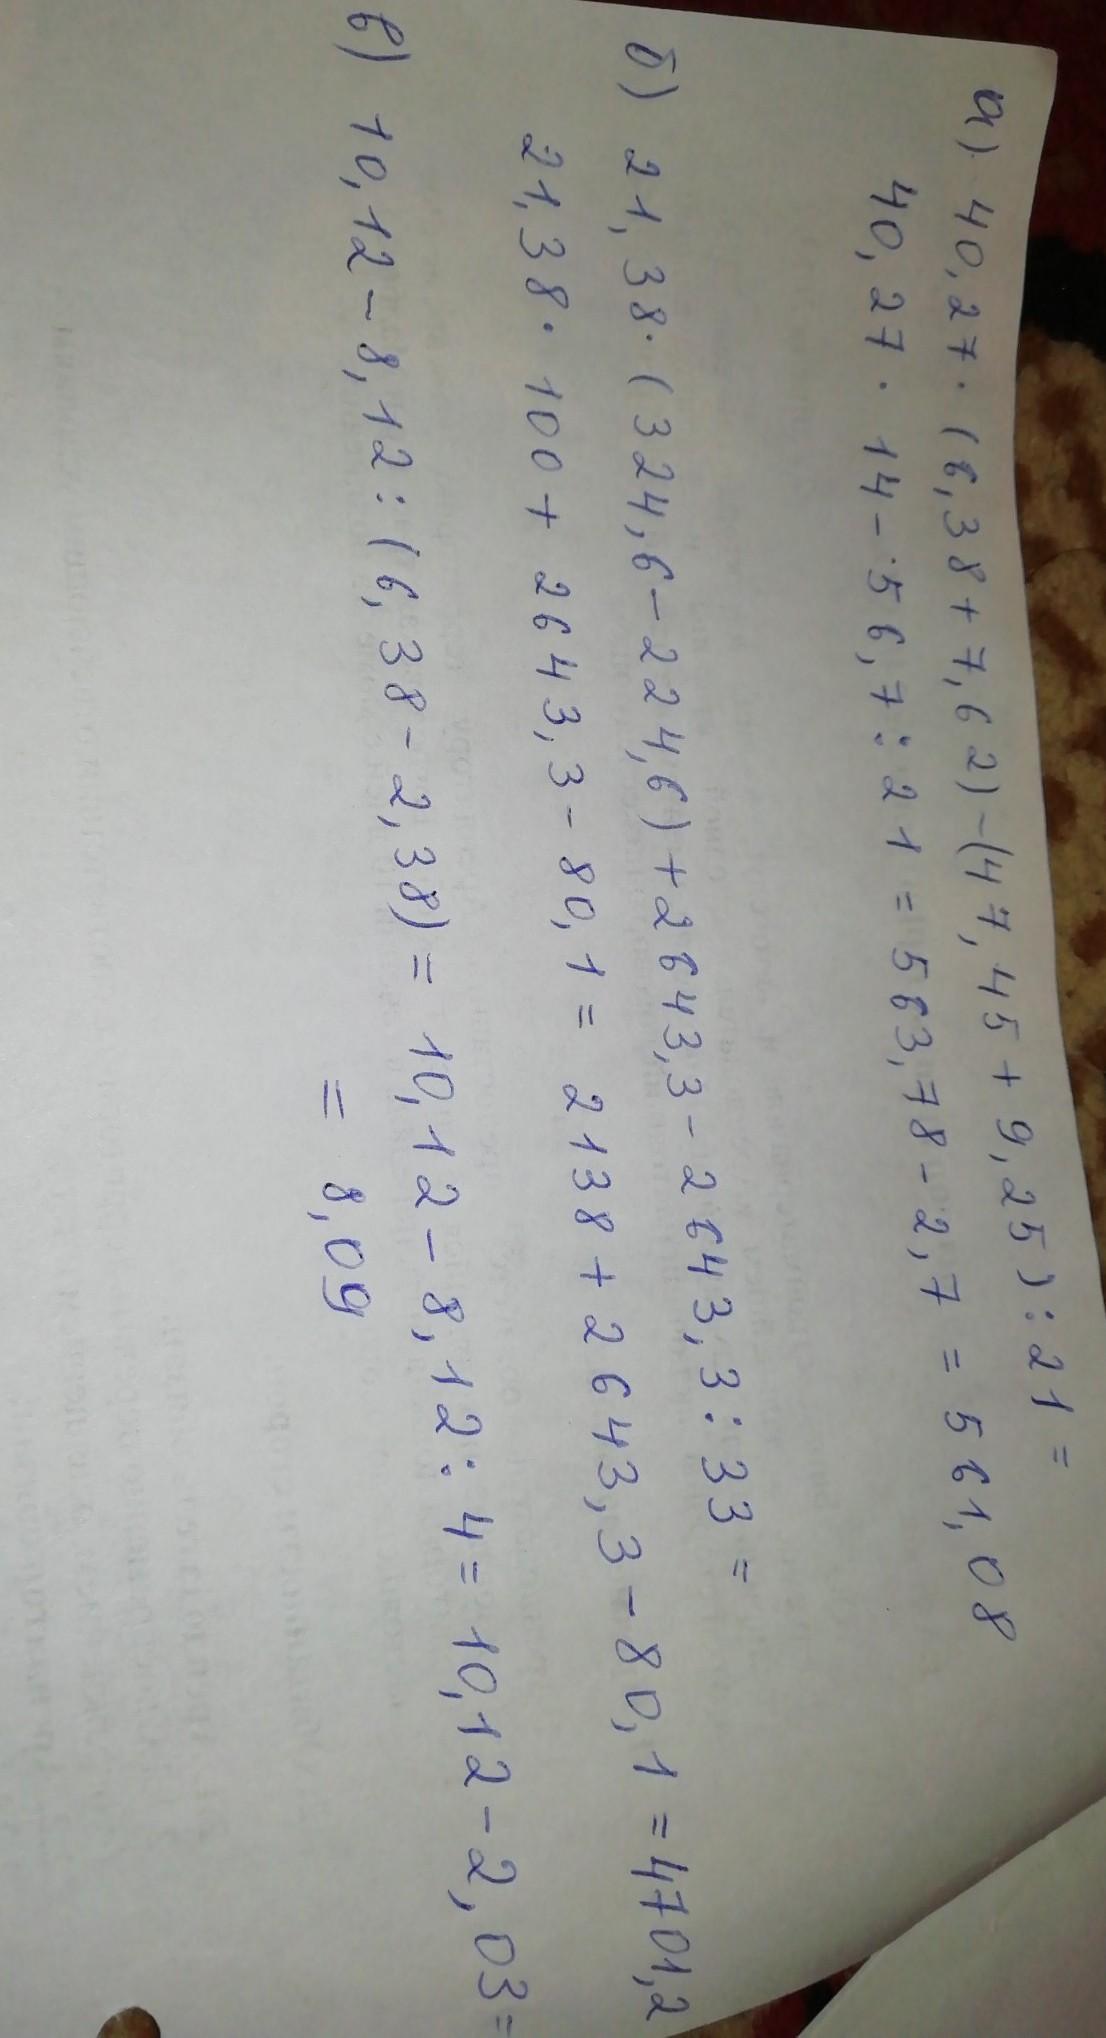 а) 40,27·(6,38+7,62)-(47,45+9,25):21=
40,27·14-56,7:21=563,78-2,7=561,08
б) 21,38·(324,6-224,6)+2643,3-2643,3:33=
21,38·100+2643,3-80,1=2138+2643,3-80,1=4701,2
в) 10,12-8,12:(6,38-2,38)=10,12-8,12:4=10,12-2,03=
=8,09